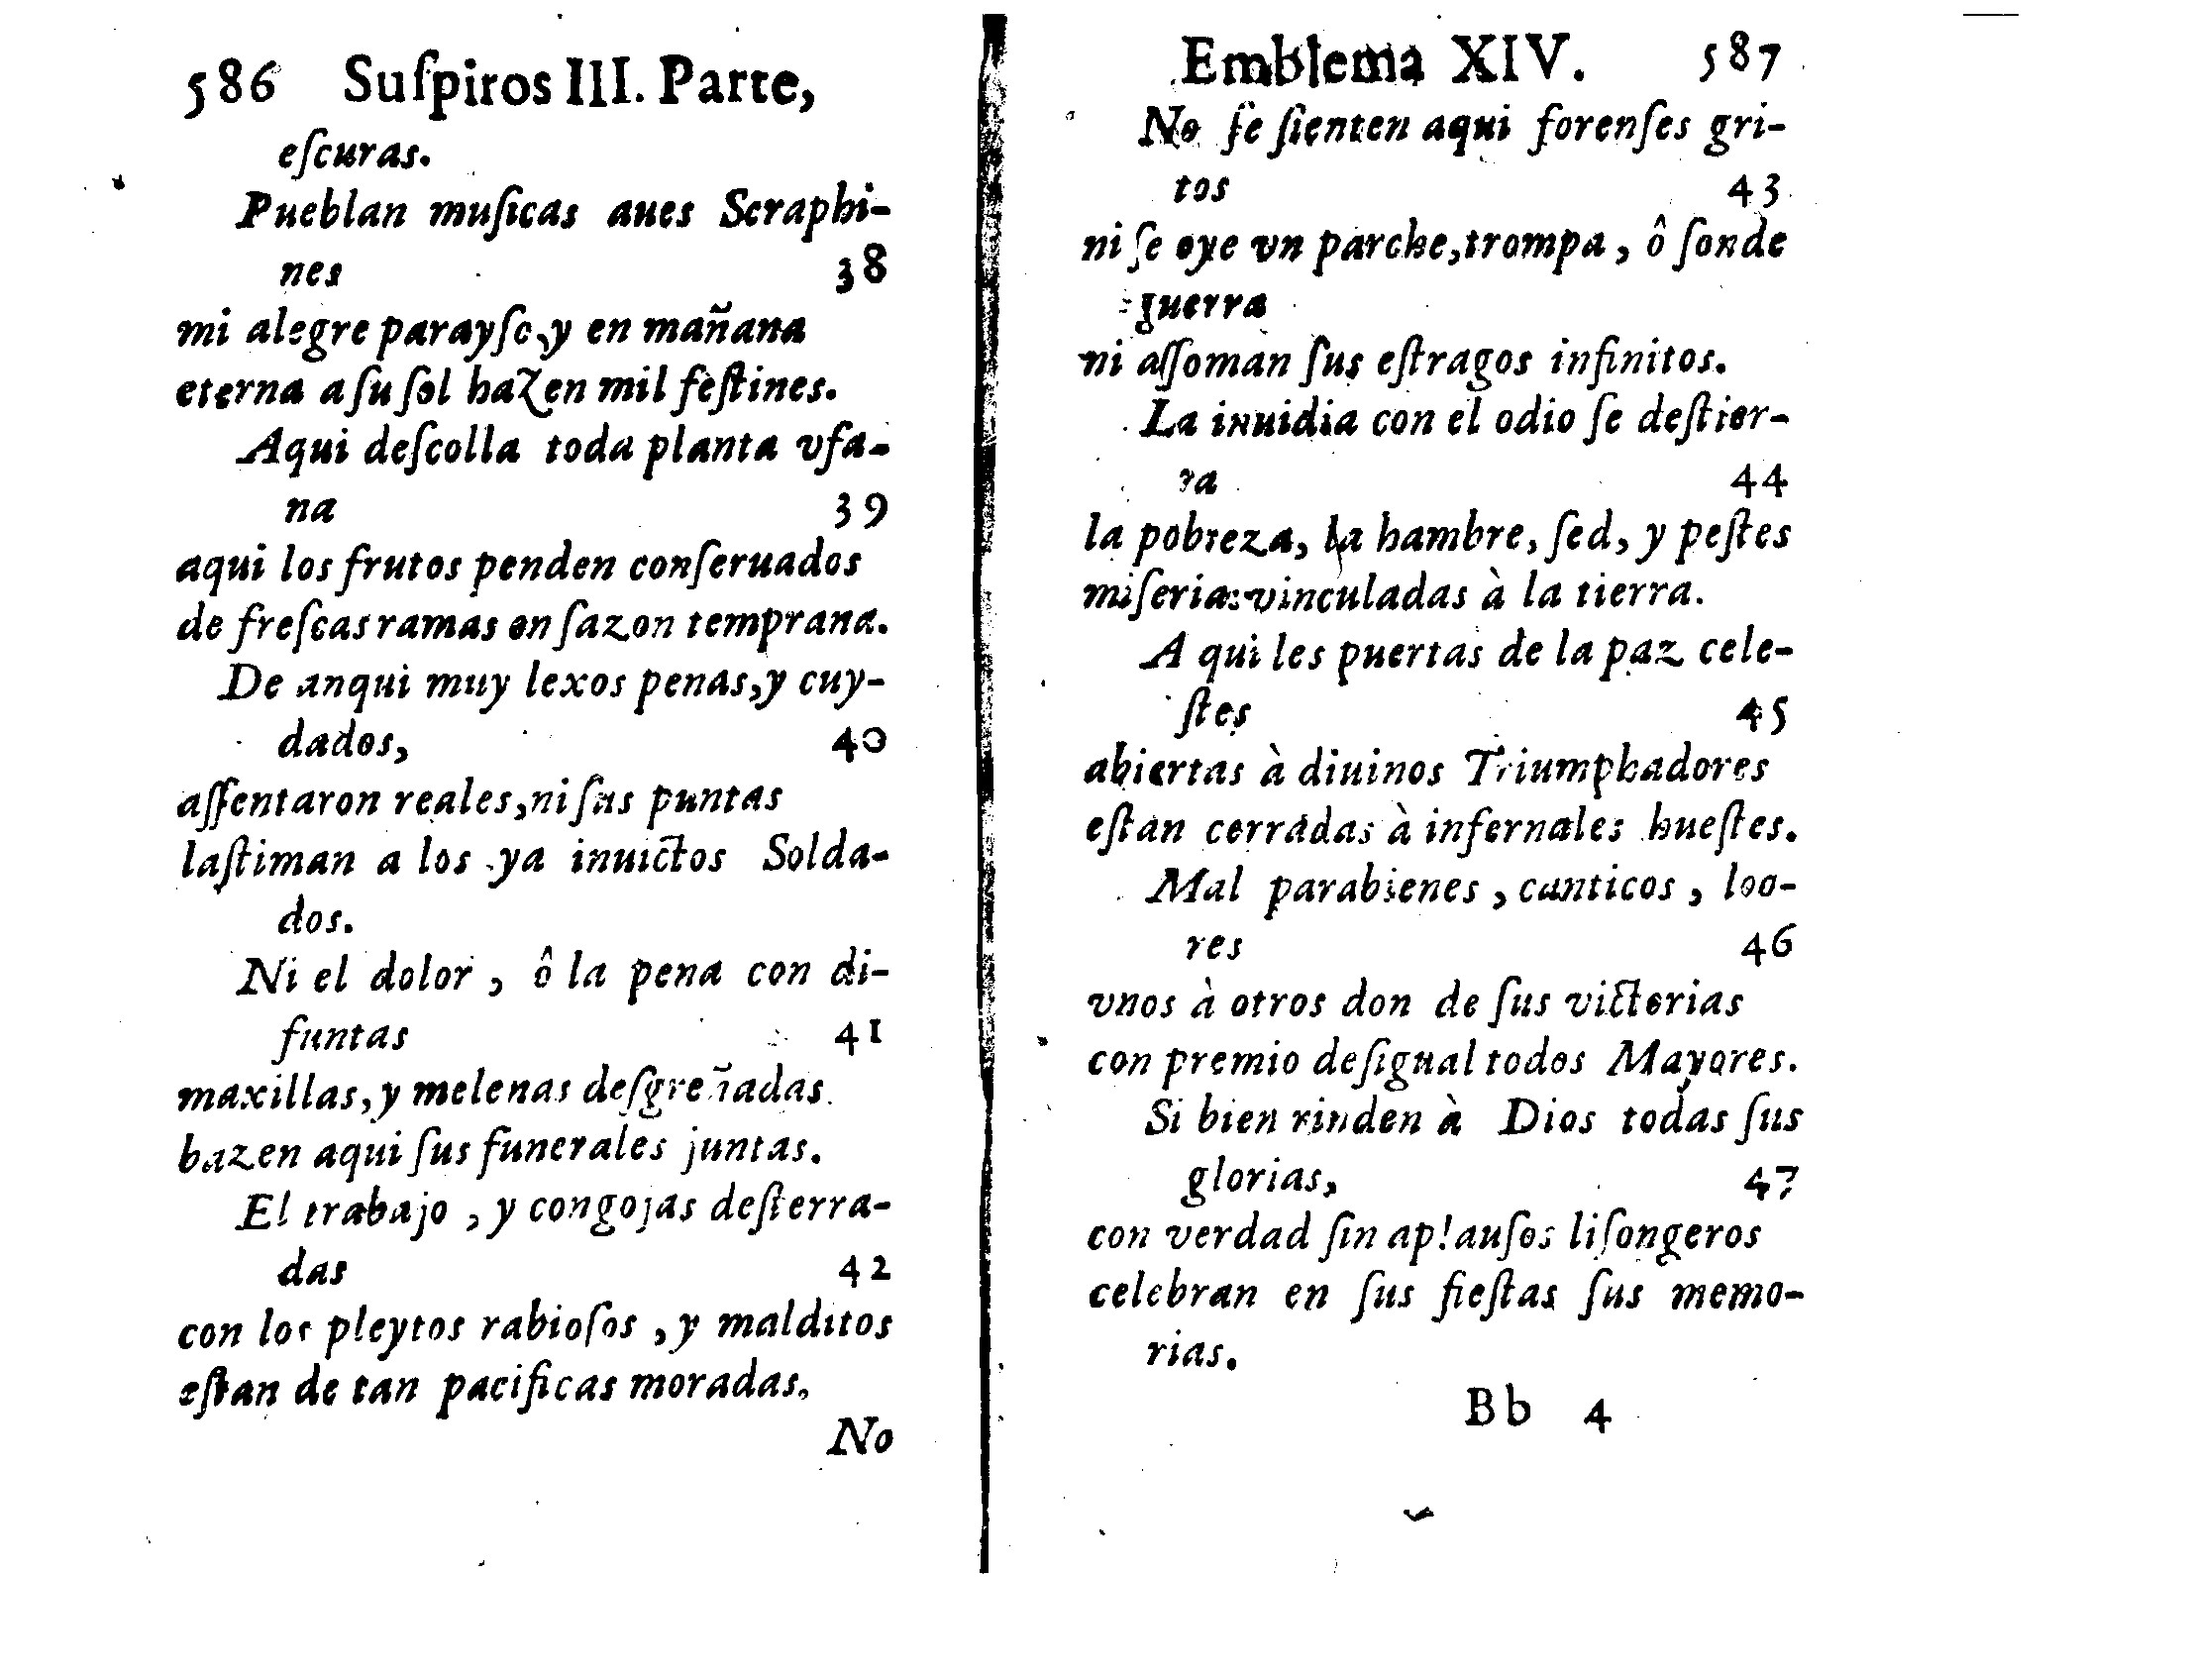 586 Suſpiros III. Parte,
eſcuras.
Pueblan muſicas aues Seraphi-
nes 38
mi alegre parayſo, y en mañana
eterna a ſu ſol hazen mil feſtines.
Aqui deſcolla toda planta vfa-
na 39
aqui los frutos penden conſeruados
de freſcas ramas en ſazon temprana.
De anqui muy lexos penas, y cuy-
dados, 40
aſſentaron reales, ni ſus puntas
laſtiman a los ya inuictos Solda-
dos.
Ni el dolor, ô la pena con di-
funtas 41
maxillas, y melenas deſgreñadas
hazen aqui ſus funerales juntas.
El trabajo, y congojas deſterra-
das 42
con los pleytos rabioſos, y malditos
eſtan de tan pacificas moradas.
No
Emblema XIV. 587
No ſe ſienten aqui forenſes gri-
tos 43
ni ſe oye vn parche, trompa, ô ſon de
guerra
ni aſſoman ſus eſtragos infinitos.
La inuidia con el odio ſe deſtier-
ra 44
la pobreza, la hambre, ſed, y peſtes
miſerias vinculadas à la tierra.
A qui les puertas de la paz cele-
ſtes 45
abiertas à diuinos Triumphadores
eſtan cerradas à infernales hueſtes.
Mal parabienes, canticos, loo-
res 46
vnos à otros don de ſus victorias
con premio deſigual todos Mayores.
Si bien rinden à Dios todas ſus
glorias, 47
con verdad ſin aplauſos liſongeros
celebran en ſus fieſtas ſus memo-
rias.
Bb 4